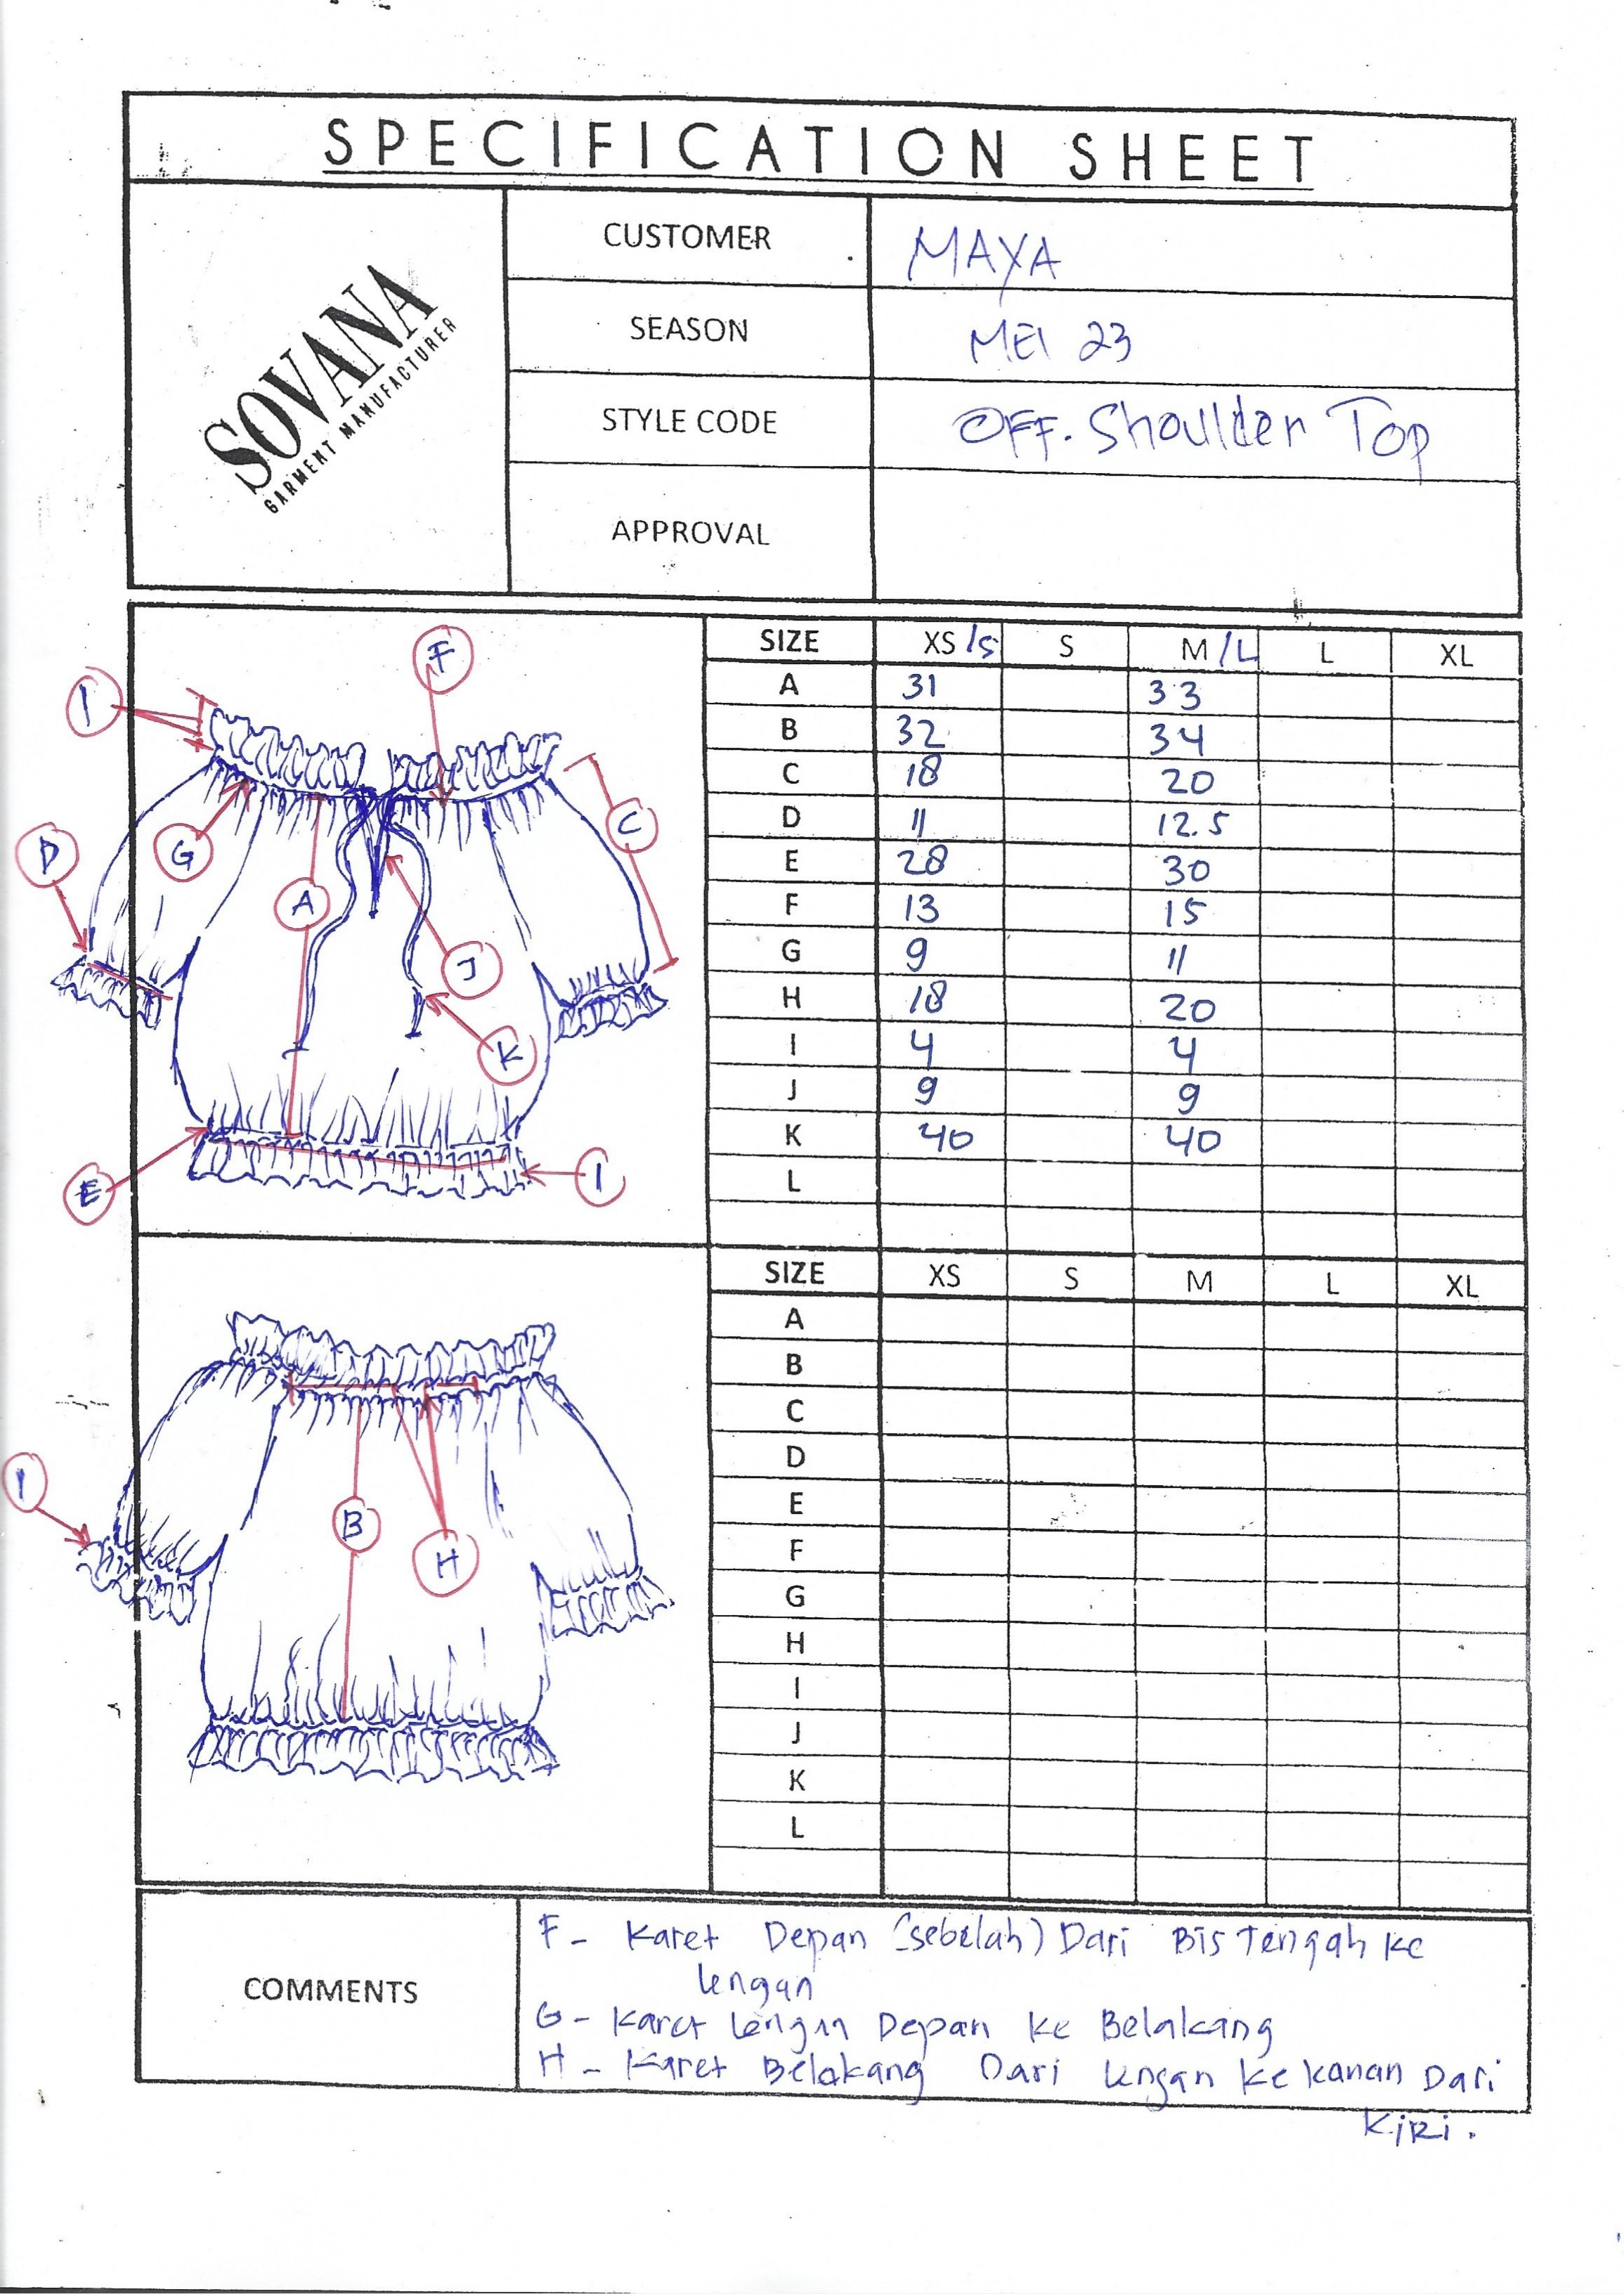 SPECIFICATION SHEET
SOVANA
GARMENT MANUFACTURER
CUSTOMER MAYA
SEASON MEI 23
STYLE CODE OFF. Shoulder Top
APPROVAL
F
I
C
D
G
A
J
K
E
I
SIZE XS/S S M/L L XL
A 31 33
B 32 34
C 18 20
D 11 12.5
E 28 30
F 13 15
G 9 11
H 18 20
I 4 4
J 9 9
K 40 40
L
I
B
H
SIZE XS S M L XL
A
B
C
D
E
F
G
H
I
J
K
L
COMMENTS
F - Karet Depan (sebelah) Dari Bis Tengah ke
lengan
G - Karet lengan Depan ke Belakang
H - Karet Belakang Dari lengan ke kanan Dari
KiRi.